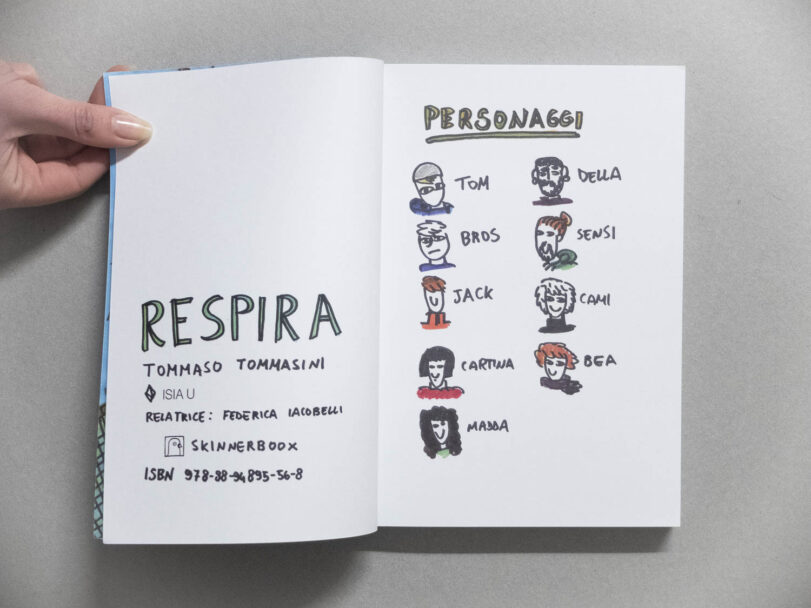 RESPIRA
TOMMASO TOMMASINI
ISIA U
RELATRICE: FEDERICA IACOBELLI
SKINNERBOOX
ISBN 978-88-94895-56-8
PERSONAGGI
TOM
BROS
JACK
CARTINA
MADDA
DELLA
SENSI
CAMI
BEA